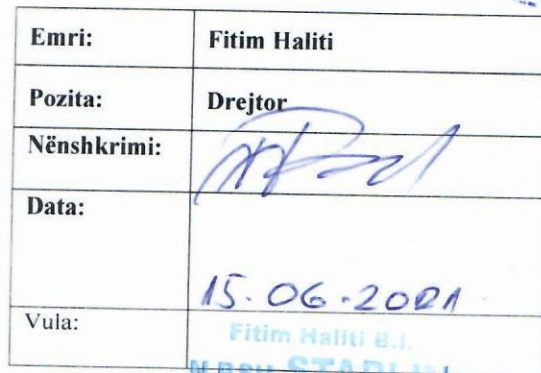 Emri: Fitim Haliti
Pozita: Drejtor
Nënshkrimi:
Data:
15.06.2021
Vula:
Fitim Haliti B.I.